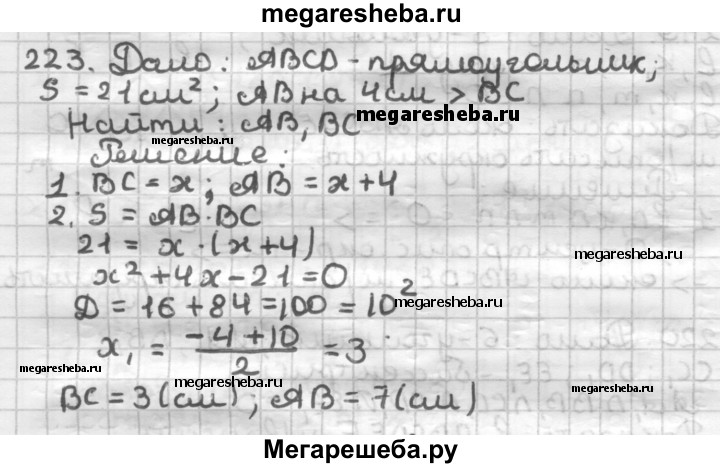 megaresheba.ru
223. Дано: ABCD - прямоугольник;
S = 21 см²; AB на 4 см > BC
megaresheba.ru
Найти: AB, BC
megaresheba.ru
Решение:
1. BC = x; AB = x+4
megaresheba.ru
2. S = AB·BC
21 = x·(x+4)
megaresheba.ru
x² + 4x - 21 = 0
D = 16 + 84 = 100 = 10²
megaresheba.ru
x₁ = (-4+10)/2 = 3
megaresheba.ru
megaresheba.ru
megaresheba.ru
BC = 3 (см); AB = 7 (см)
Мегарешеба.ру